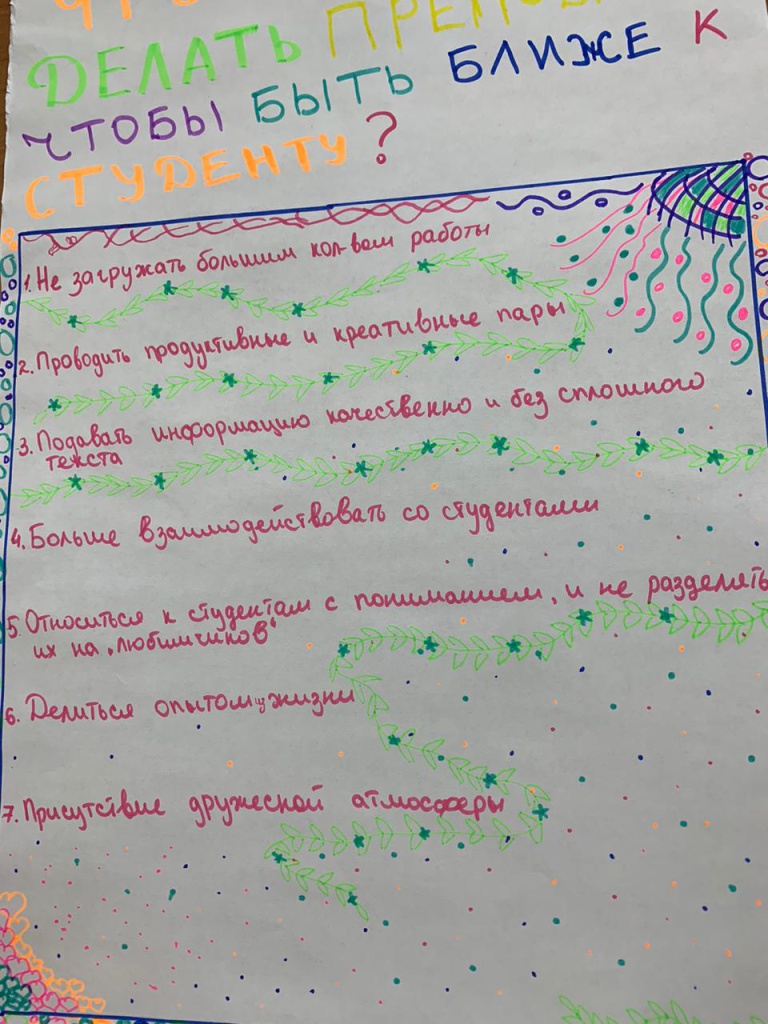 ДЕЛАТЬ
ЧТОБЫ БЫТЬ БЛИЖЕ К
СТУДЕНТУ?
1. Не загружать большим кол-вом работы
2. Проводить продуктивные и креативные пары
3. Подавать информацию качественно и без сплошного
текста
4. Больше взаимодействовать со студентами
5. Относиться к студентам с пониманием, и не разделять
их на "любимчиков"
6. Делиться опытом из жизни
7. Присутствие дружеской атмосферы